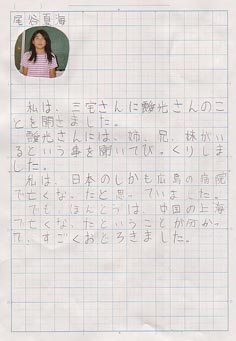 尾谷夏海
私は、三宅さんに艶光さんのこ
とを聞きました。
艶光さんには、姉、兄、妹がい
るという事を聞いてびっくりしま
した。
私は、日本のしかも広島の病院
で亡くなったと思っていました。
でも、ほんとうは、中国の上海
で亡くなったということが分かっ
て、すごくおどろきました。